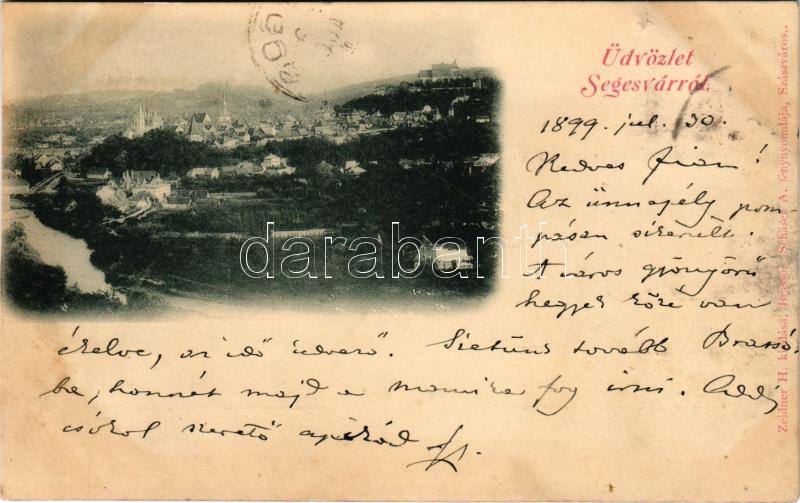 Üdvözlet
Segesvárról.
1899. jul. 30.
Kedves fiam!
Az ünnepély pom-
pásan sikerült.
A város gyönyörű
hegyek közé van
ékelve, az idő üdvözö. Sietünk tovább Brassó-
ba, honnét majd a mamika fog irni. Addig
csókol szerető apikád
darabanth.com
Zeidner H. kiadása, Brassó. A. fénynyomdája, Szászváros.